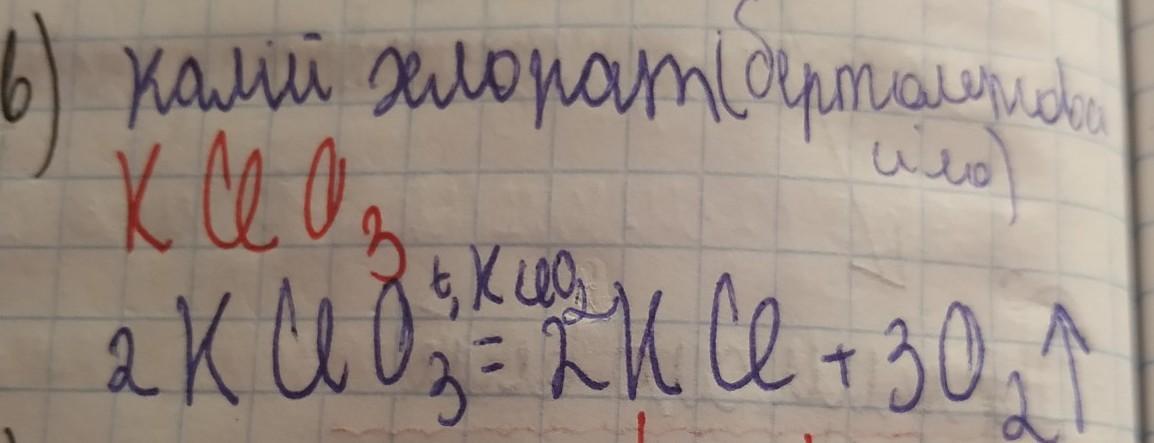 б) калій хлорат (бертолетова
сіль)
KClO₃
t, KClO₂
2KClO₃ = 2KCl + 3O₂↑